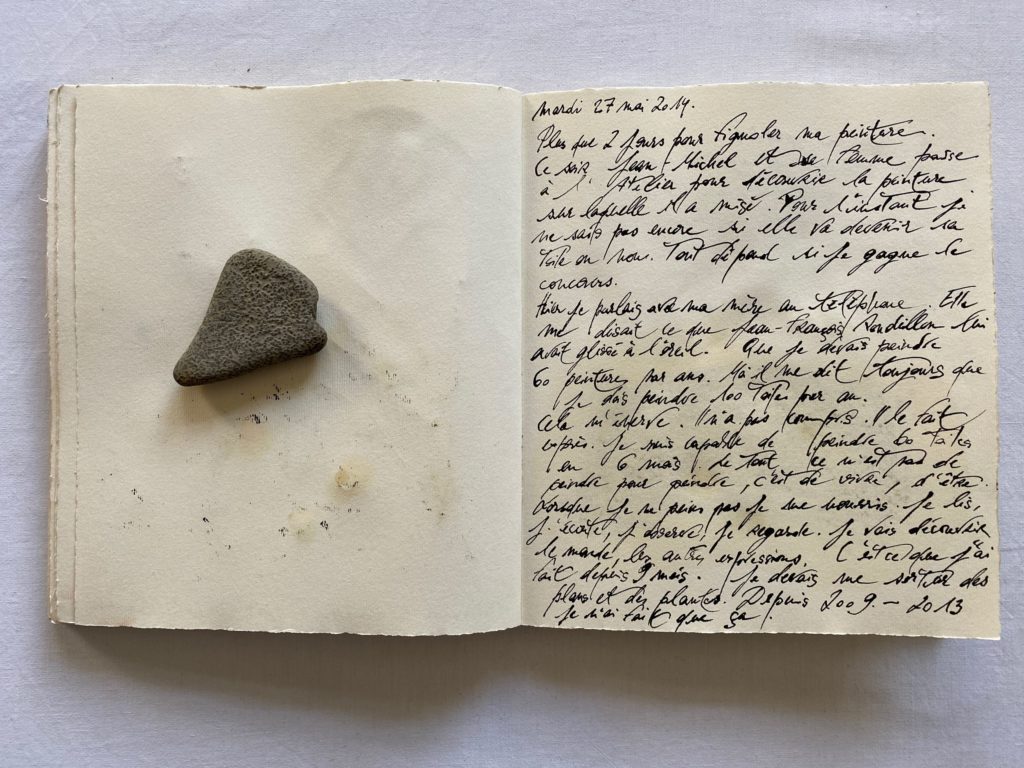 mardi 27 mai 2014.
Plus que 2 jours pour fignoler ma peinture.
Ce soir Jean-Michel et sa femme passe
à l'Atelier pour découvrir la peinture
sur laquelle il a misé. Pour l'instant je
ne sais pas encore si elle va devenir sa
toile ou non. Tout dépend si je gagne le
concours.
Hier je parlais avec ma mère au téléphone. Elle
me disait ce que Jean-François lui
avait glissé à l'oreil. Que je devais peindre
60 peintures par ans. Il me dit toujours que
je dois peindre 100 toiles par an.
Cela m'énerve. Il n'a pas compris. Il le fait
exprès. Je suis capable de peindre 60 toiles
en 6 mois. Le tout ce n'est pas de
peindre pour peindre, c'est de vivre, d'être.
Lorsque je ne peins pas je me nourris. Je lis,
j'écoute, j'observe, je regarde. Je vais découvrir
le monde, les autres expressions. C'est ce que j'ai
fait depuis 9 mois. Je devais me sortir des
plans et des plantes. Depuis 2009 - 2013
je n'ai fait que ça!